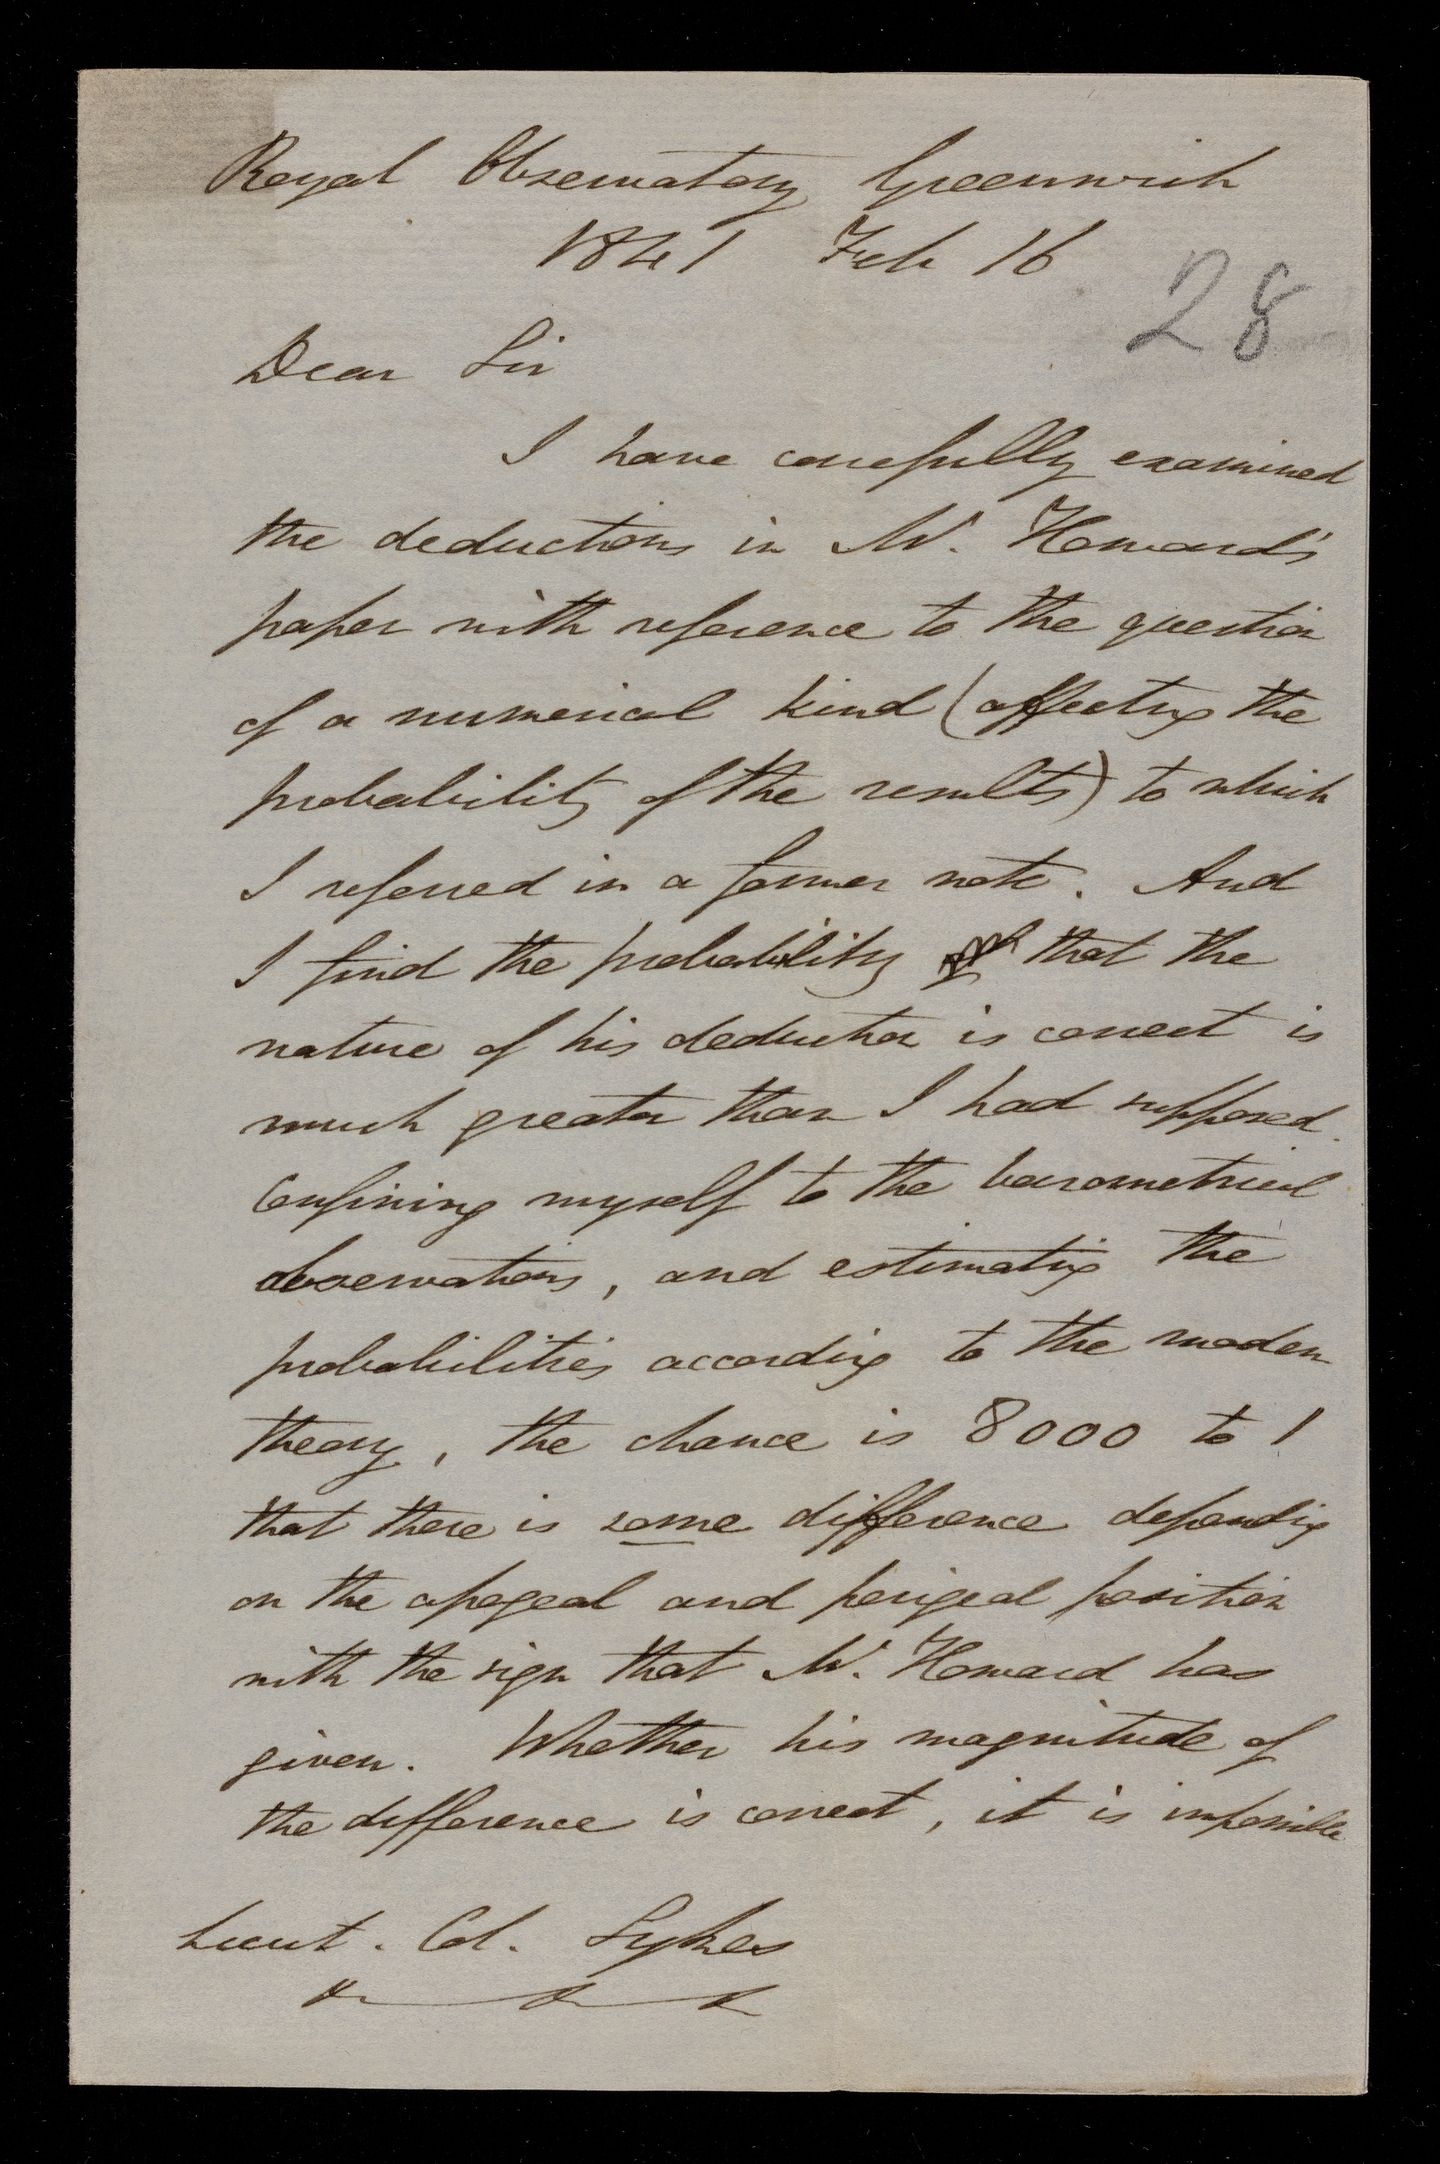 Royal Observatory Greenwich
1841 Feb 16
28
Dear Sir
I have carefully examined
the deductions in Mr. Howard's
paper with reference to the question
of a numerical kind (affecting the
probability of the results) to which
I referred in a former note. And
I find the probability that the
nature of his deduction is correct is
much greater than I had supposed.
Confining myself to the barometrical
observations, and estimating the
probabilities according to the modern
theory, the chance is 8000 to 1
that there is some difference depending
on the apogeal and perigeal position
with the sign that Mr. Howard has
given. Whether his magnitude of
the difference is correct, it is impossible
Lieut. Col. Sykes